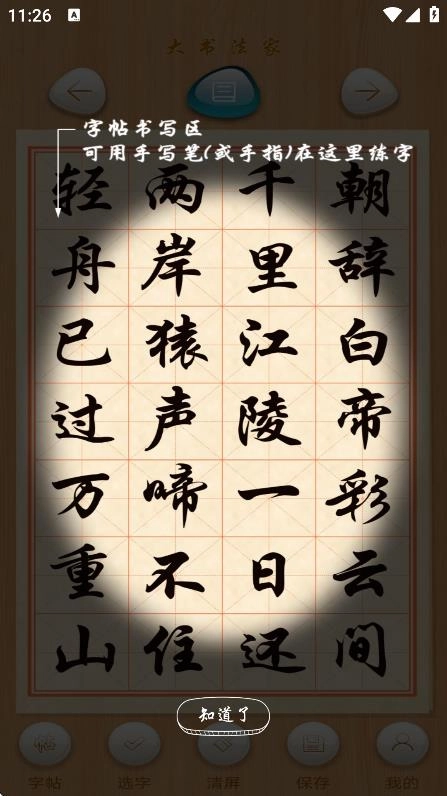 11:26
大书法家
字帖书写区
可用手写笔(或手指)在这里练字
朝辞白帝彩云间
千里江陵一日还
两岸猿声啼不住
轻舟已过万重山
知道了
字帖 选字 清屏 保存 我的